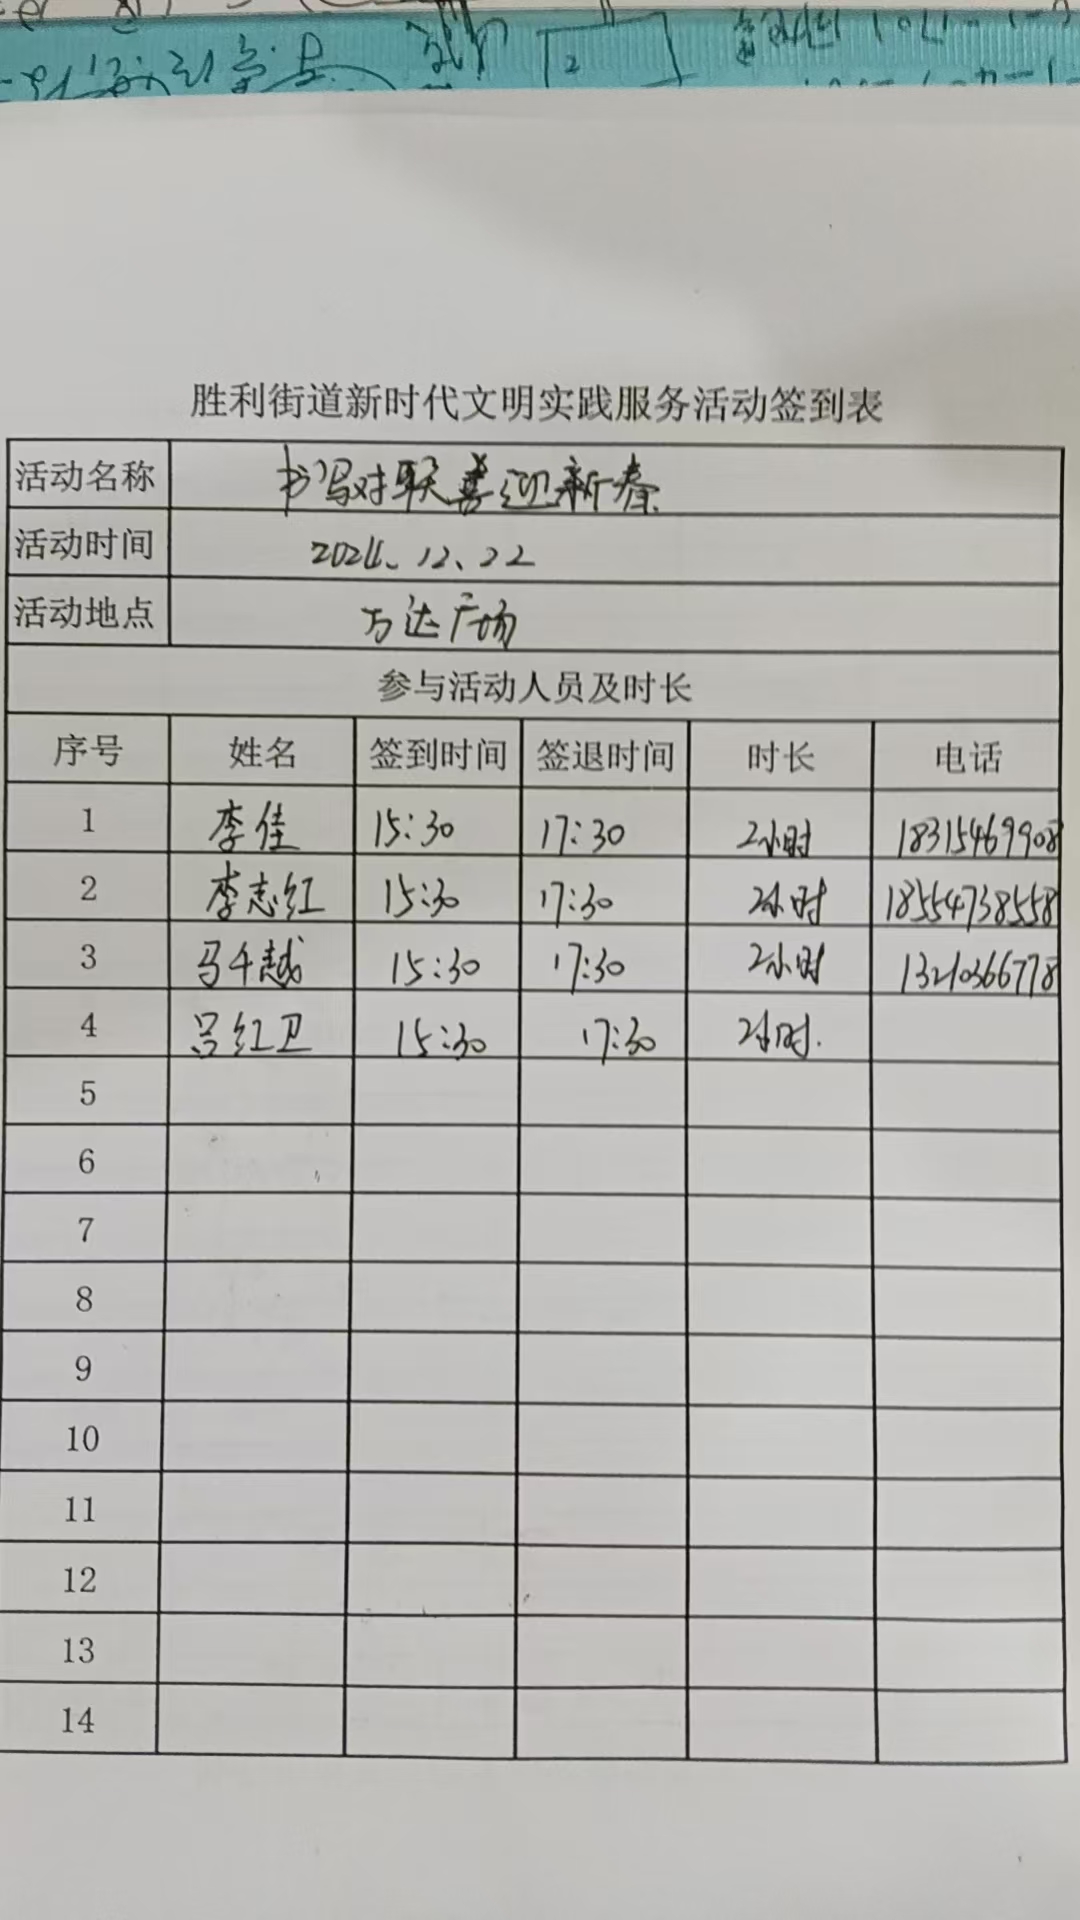 胜利街道新时代文明实践服务活动签到表
活动名称 书写对联喜迎新春
活动时间 2024.12.22
活动地点 万达广场
参与活动人员及时长
序号 姓名 签到时间 签退时间 时长 电话
1 李佳 15:30 17:30 2小时 18315469908
2 李志红 15:30 17:30 2小时 18554738558
3 马千越 15:30 17:30 2小时 13210366778
4 吕红卫 15:30 17:30 2小时.
5
6
7
8
9
10
11
12
13
14